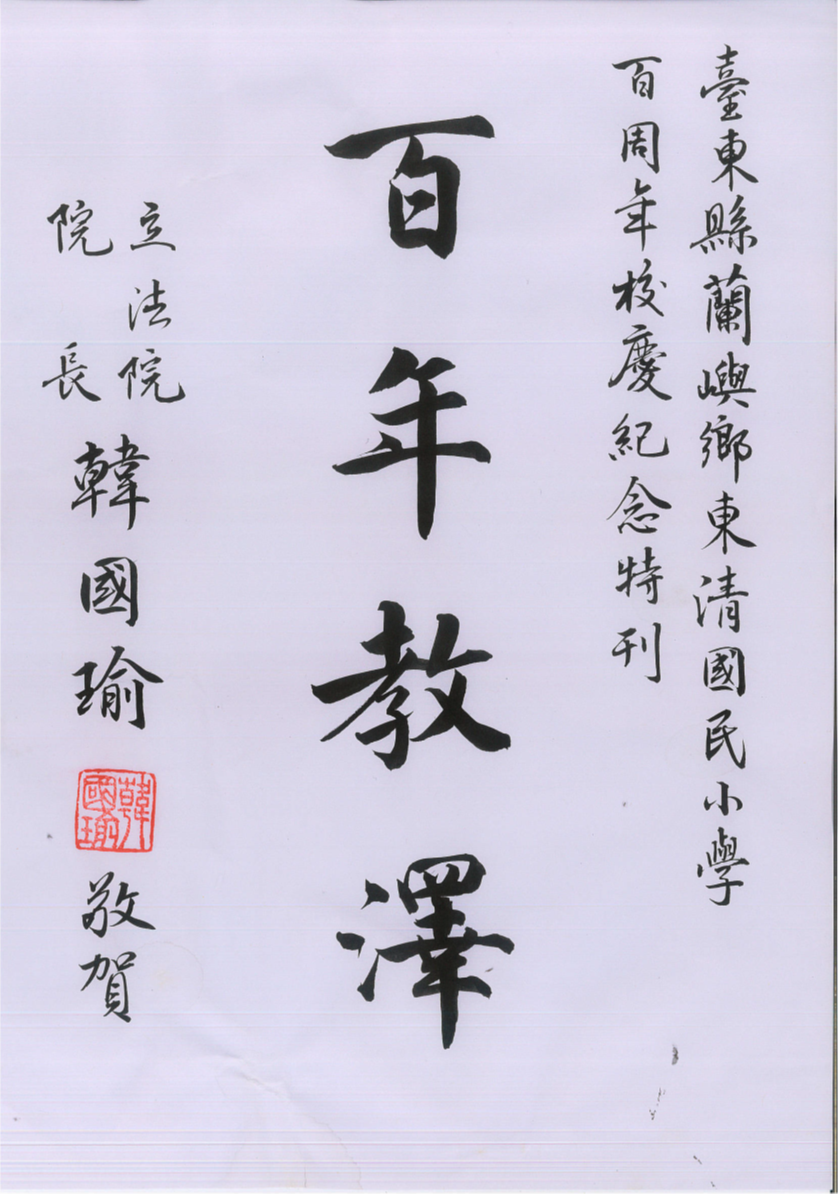 臺東縣蘭嶼鄉東清國民小學
百周年校慶紀念特刊
百年教澤
立法院
院長
韓國瑜
韓國瑜
敬賀